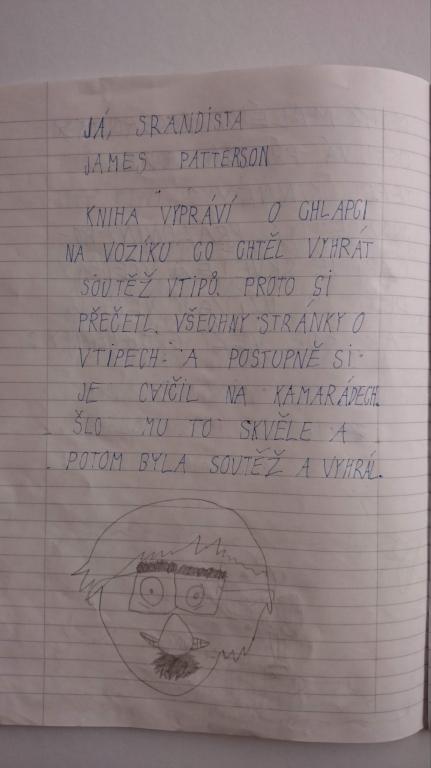 JÁ, SRANDISTA
JAMES PATTERSON
KNIHA VYPRÁVÍ O CHLAPCI
NA VOZÍKU CO CHTĚL VYHRÁT
SOUTĚŽ VTIPŮ. PROTO SI
PŘEČETL VŠECHNY STRÁNKY O
VTIPECH. A POSTUPNĚ SI
JE CVIČIL NA KAMARÁDECH.
ŠLO MU TO SKVĚLE A
POTOM BYLA SOUTĚŽ A VYHRÁL.